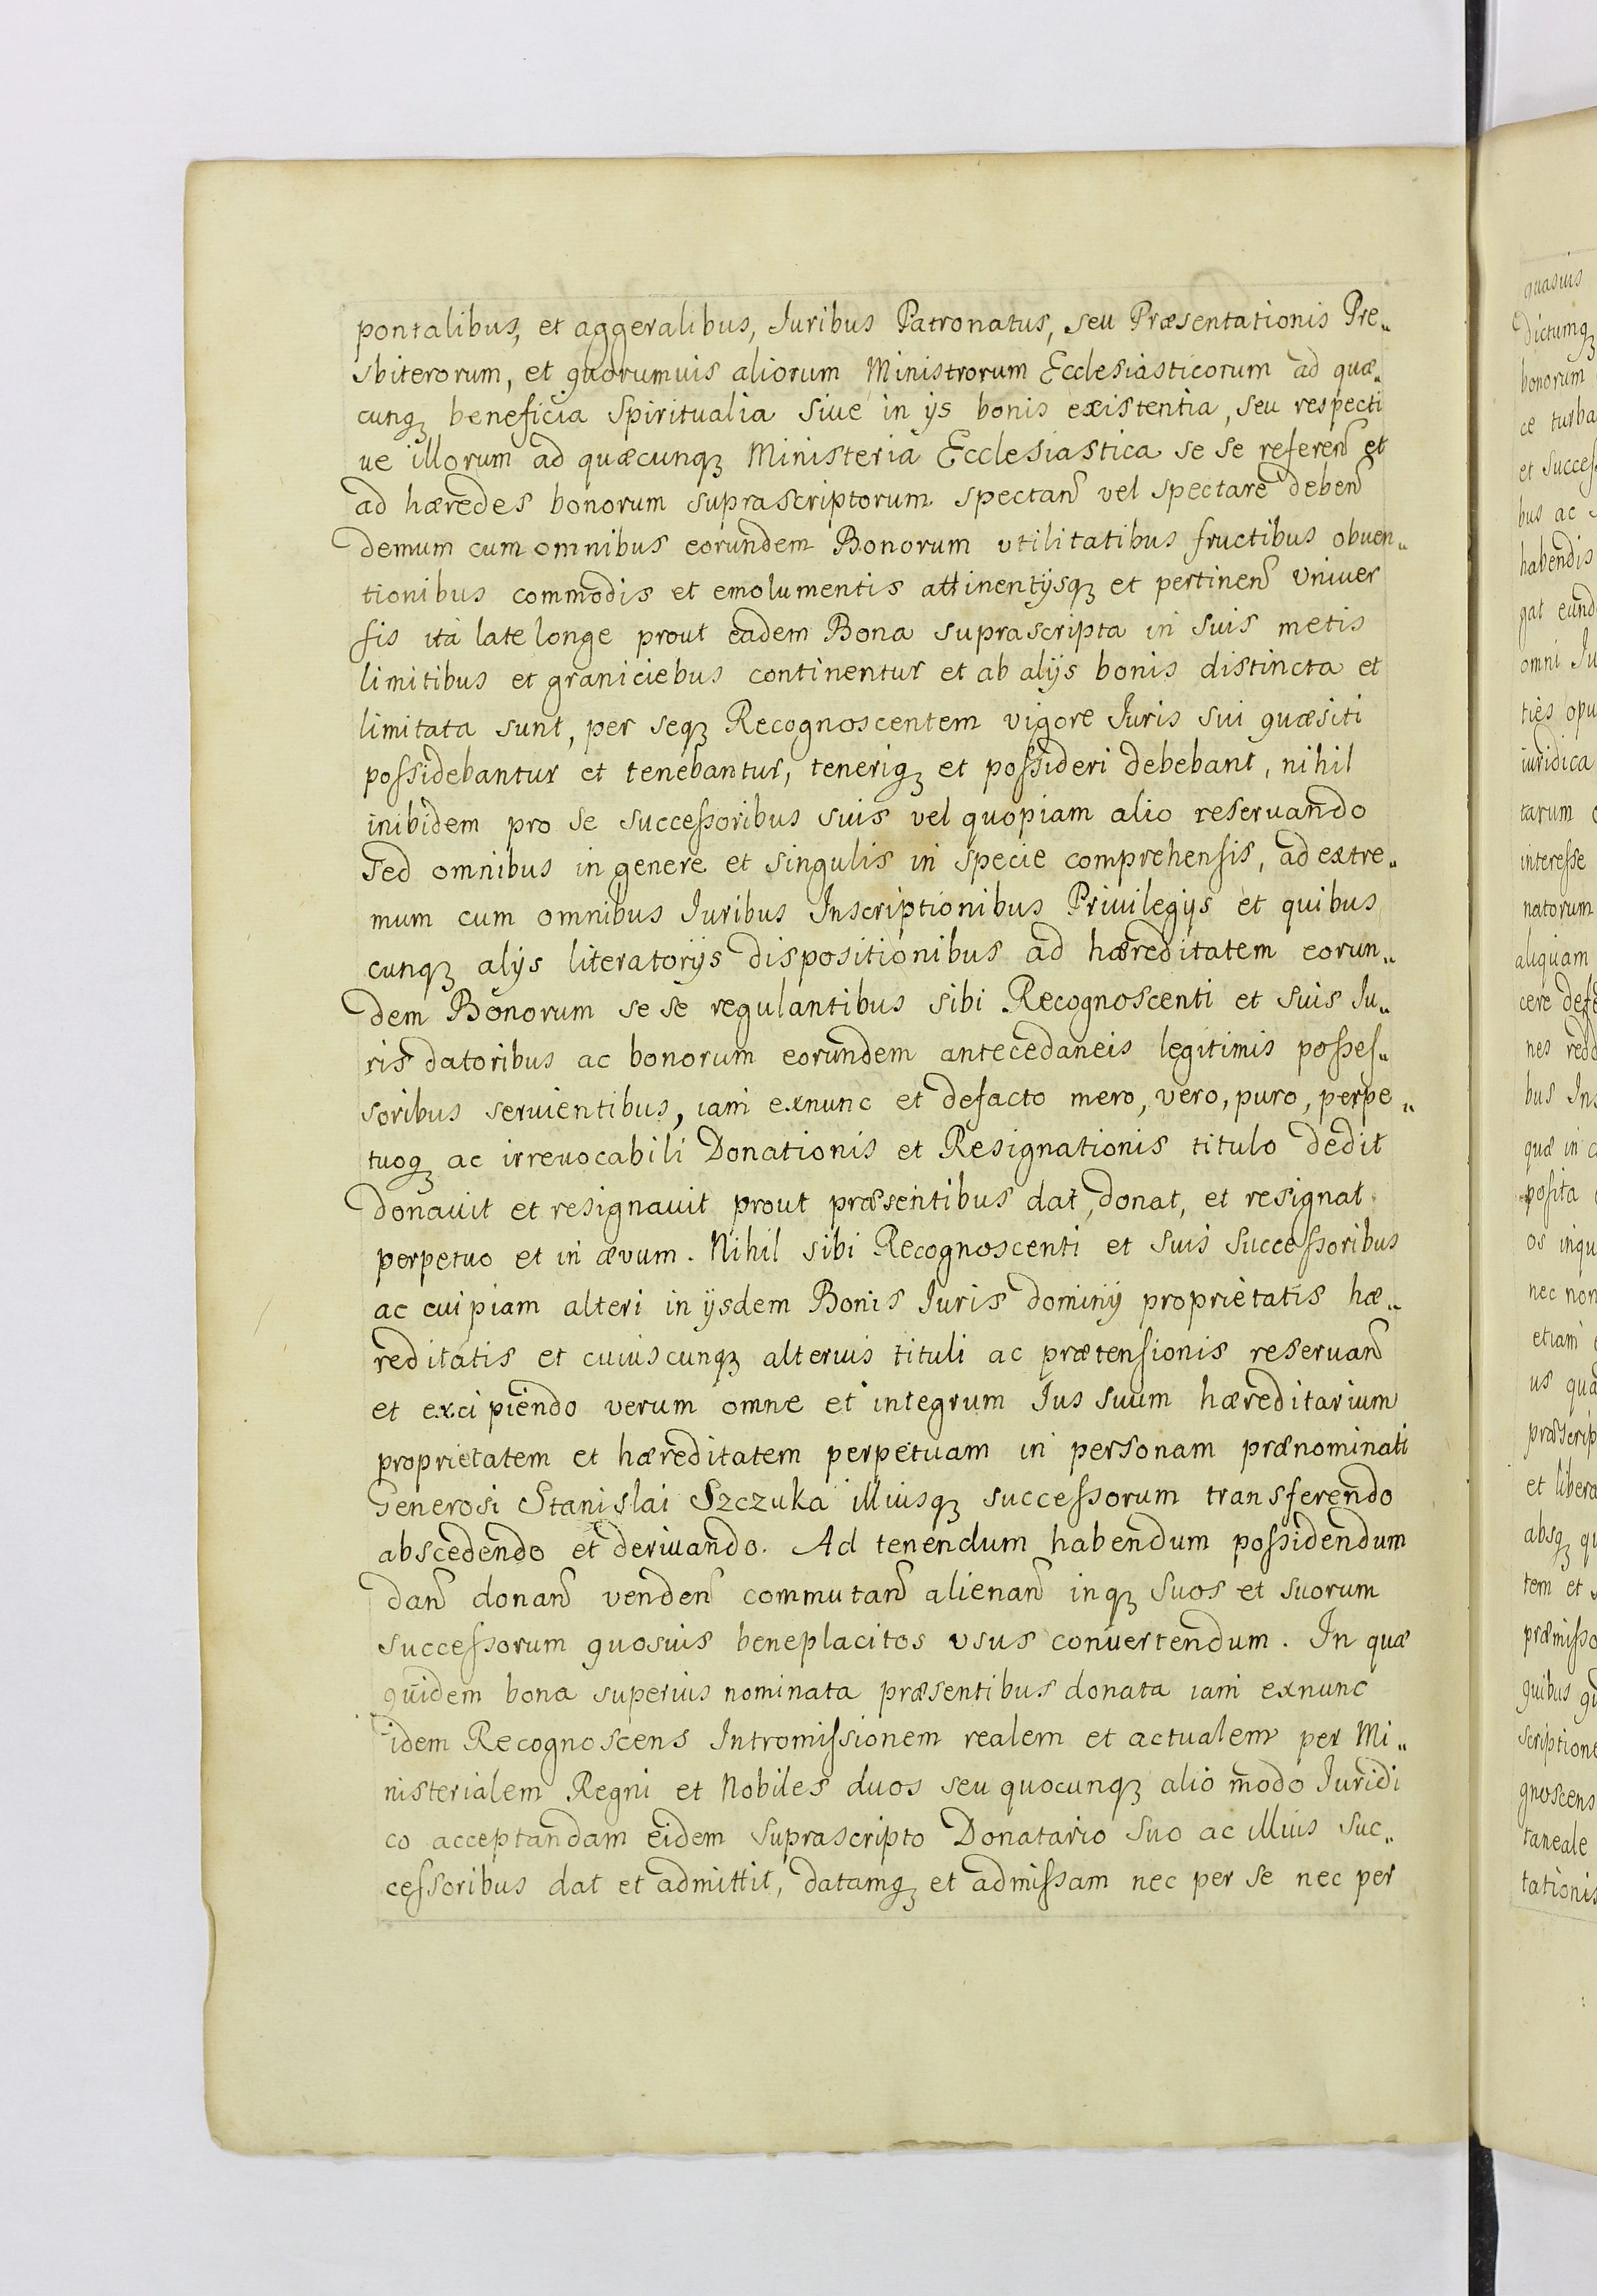 pontalibus, et aggeralibus, Iuribus Patronatus, seu Præsentationis Pre„
sbiterorum, et quorumuis aliorum Ministrorum Ecclesiasticorum ad quæ„
cunqꝫ beneficia Spiritualia siue in ys bonis existentia, seu respecti
ue illorum ad quæcunqꝫ Ministeria Ecclesiastica se se referen̄ et
ad hæredes bonorum suprascriptorum spectan̄ vel spectare deben̄
demum cum omnibus eorundem Bonorum vtilitatibus fructibus obuen„
tionibus commodis et emolumentis attinentÿsqꝫ et pertinen̄ Vniuer
sis ità late longe prout eadem Bona suprascripta in suis metis
limitibus et graniciebus continentur et ab alÿs bonis distincta et
limitata sunt, per seqꝫ Recognoscentem vigore Iuris sui quæsiti
possidebantur et tenebantur, teneriqꝫ et possideri debebant, nihil
inibidem pro se successoribus suis vel quopiam alio reseruando
sed omnibus in genere et singulis in specie comprehensis, ad extre„
mum cum omnibus Iuribus Inscriptionibus Priuilegÿs et quibus
cunqꝫ alÿs literatorÿs dispositionibus ad hæreditatem eorun„
dem Bonorum se se regulantibus sibi Recognoscenti et suis Iu„
ris datoribus ac bonorum eorundem antecedaneis legitimis posses„
soribus seruientibus, iam exnunc et defacto mero, vero, puro, perpe„
tuoqꝫ ac irreuocabili Donationis et Resignationis titulo dedit
donauit et resignauit prout præsentibus dat, donat, et resignat
perpetuo et in ævum. Nihil sibi Recognoscenti et suis successoribus
ac cuipiam alteri in ÿsdem Bonis Iuris dominÿ proprietatis hæ„
reditatis et cuiuscunqꝫ alterius tituli ac prætensionis reseruan̄
et excipiendo verum omne et integrum Ius suum hæreditarium
proprietatem et hæreditatem perpetuam in personam prænominati
Generosi Stanislai Szczuka illiusqꝫ successorum transferendo
abscedendo et deriuando. Ad tenendum habendum possidendum
dan̄ donan̄ venden̄ commutan̄ alienan̄ inqꝫ suos et suorum
successorum quosuis beneplacitos vsus conuertendum. In quæ
quidem bona superius nominata præsentibus donata iam exnunc
idem Recognoscens Intromissionem realem et actualem per Mi„
nisterialem Regni et Nobiles duos seu quocunqꝫ alio modo Iuridi
co acceptandam eidem suprascripto Donatario suo ac illius suc„
cessoribus dat et admittit, datamqꝫ et admissam nec per se nec per
quasuis
Dictumqꝫ
bonorum
ce turba
et succes
bus ac
habendis
gat eund
omni Iu
ties opu
iuridica
tarum
interesse
natorum
aliquam
cere defe
nes redd
bus Ins
quæ in
posita
os inqu
nec non
etiam
us qua
præscrip
et libera
absqꝫ qu
tem et
præmisso
quibus qu
scription
gnoscens
taneale
tationis